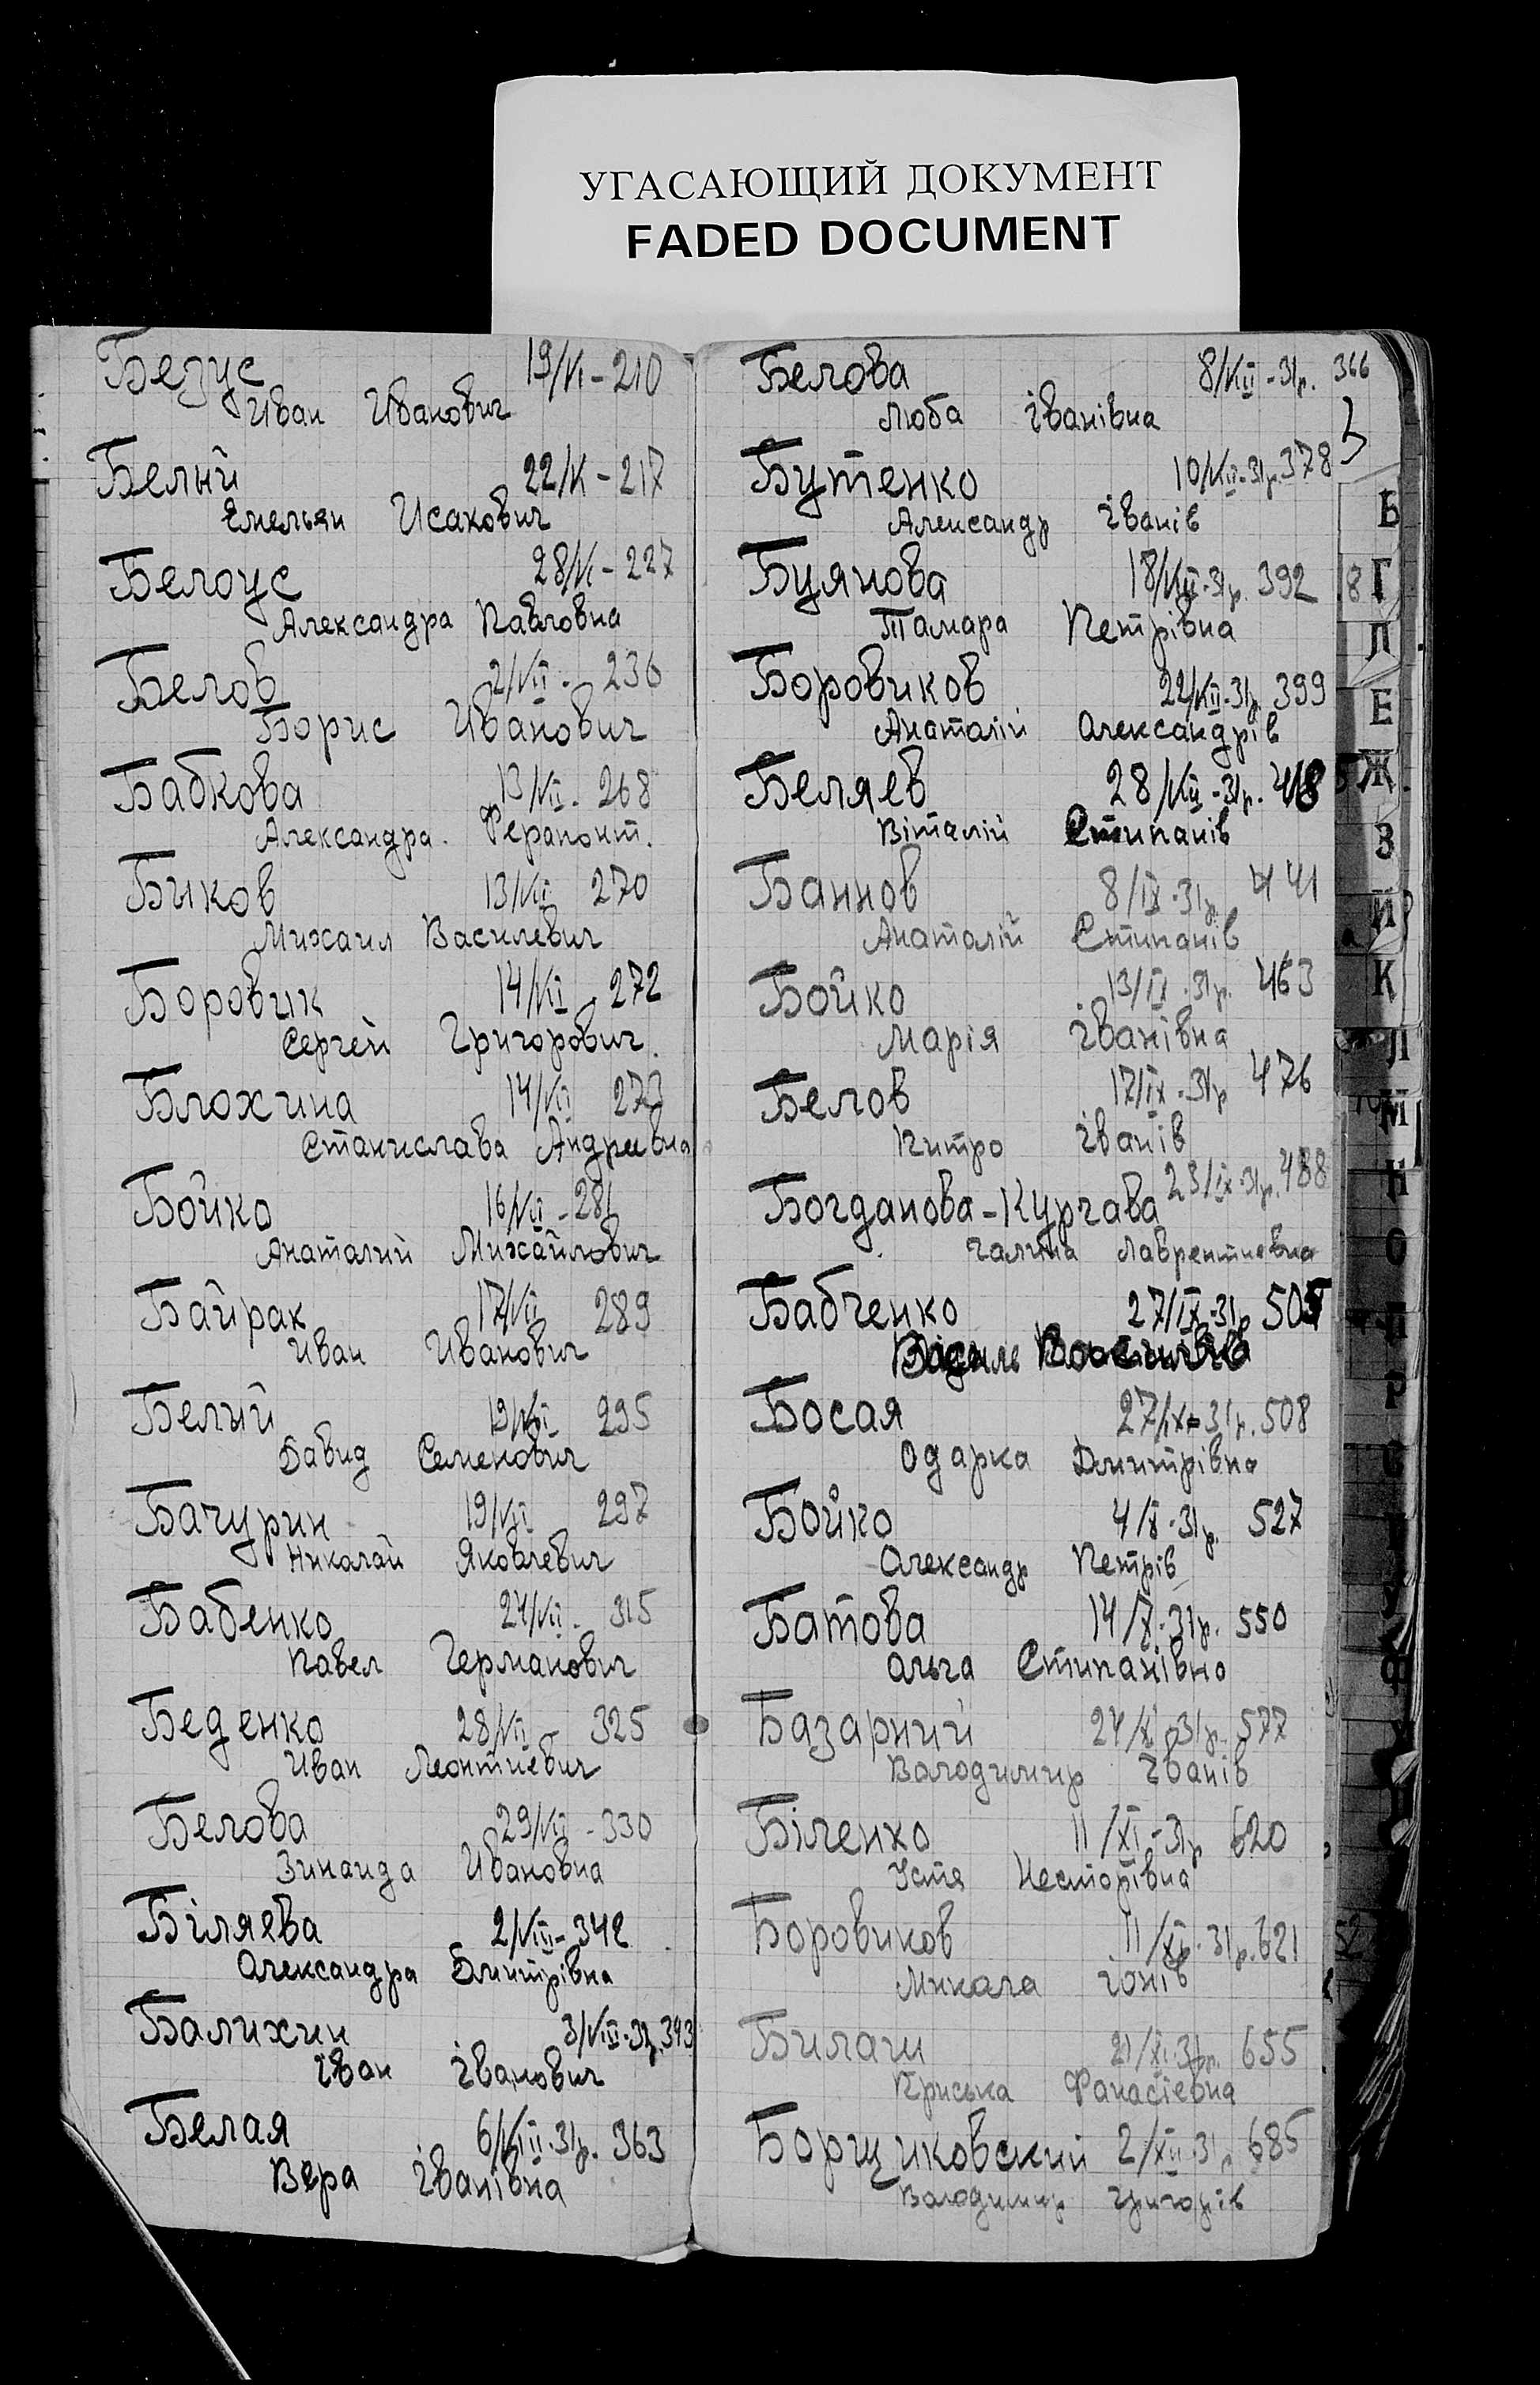 УГАСАЮЩИЙ ДОКУМЕНТ
FADED DOCUMENT
Безус 19/VI - 210
Иван Иванович
Белый 22/VI - 217
Емельян Исакович
Белоус 28/VI - 227
Александра Павловна
Белов 2/VII - 236
Борис Иванович
Бабкова 13/VII - 268
Александра Ферапонт.
Быков 13/VII 270
Михаил Василевич
Боровик 14/VII - 272
Сергей Григорович
Блохина 14/VII 273
Станислава Андреевна
Бойко 16/VII - 281
Анаталий Михайлович
Байрак 17/VII 289
Иван Иванович
Белый 19/VII 295
Давид Семенович
Бачурин 19/VII 297
Николай Яковлевич
Бабенко 24/VII - 315
Павел Германович
Беденко 28/VII - 325
Иван Леонтиевич
Белова 29/VII - 330
Зинаида Ивановна
Біляева 2/VIII - 342
Олександра Дмитрівна
Балихин 3/VIII-31р. 343
Іван Іванович
Белая 6/VIII-31р. 363
Вера Іванівна
Белова 8/VIII-31р. 366
Люба Іванівна
Бутенко 10/VIII-31р. 378
Александр Іванів
Буянова 18/VIII-31р. 392
Тамара Петрівна
Боровиков 22/VIII-31р. 399
Анаталій Олександрів
Беляев 28/VIII-31р. 418
Віталій Стипанів
Баннов 8/IX-31р. 441
Анаталій Стипанів
Бойко 13/IX-31р. 463
Марія Іванівна
Белов 17/IX-31р 476
Питро Іванів
Богданова-Курчава 23/IX-31р. 488
Галина Лаврентиевна
Бабченко 27/IX-31р 505
Босая 27/IX-31р. 508
Одарка Дмитрівна
Бойко 4/X-31р. 527
Олександр Петрів
Батова 14/X-31р. 550
Ольга Стипанівна
Базарний 24/X-31р. 577
Володимир Іванів
Біленко 11/XI-31р 620
Устя Несторівна
Боровиков 11/XI-31р. 621
Микола Іонів
Билаш 21/XI-31р. 655
Приська Фанасіевна
Борщиковский 2/XII-31р 685
Володимир Григорів
Б
Г
Е
Ж
З
И
К
Л
М
Н
О
П
Р